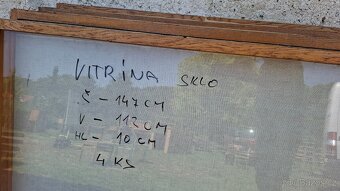 VITRÍNA SKLO
Š - 147 CM
V - 112 CM
HL - 10 CM
4 KS